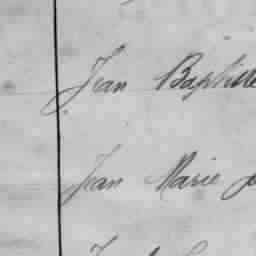 Jean Baptiste
Jean Marie